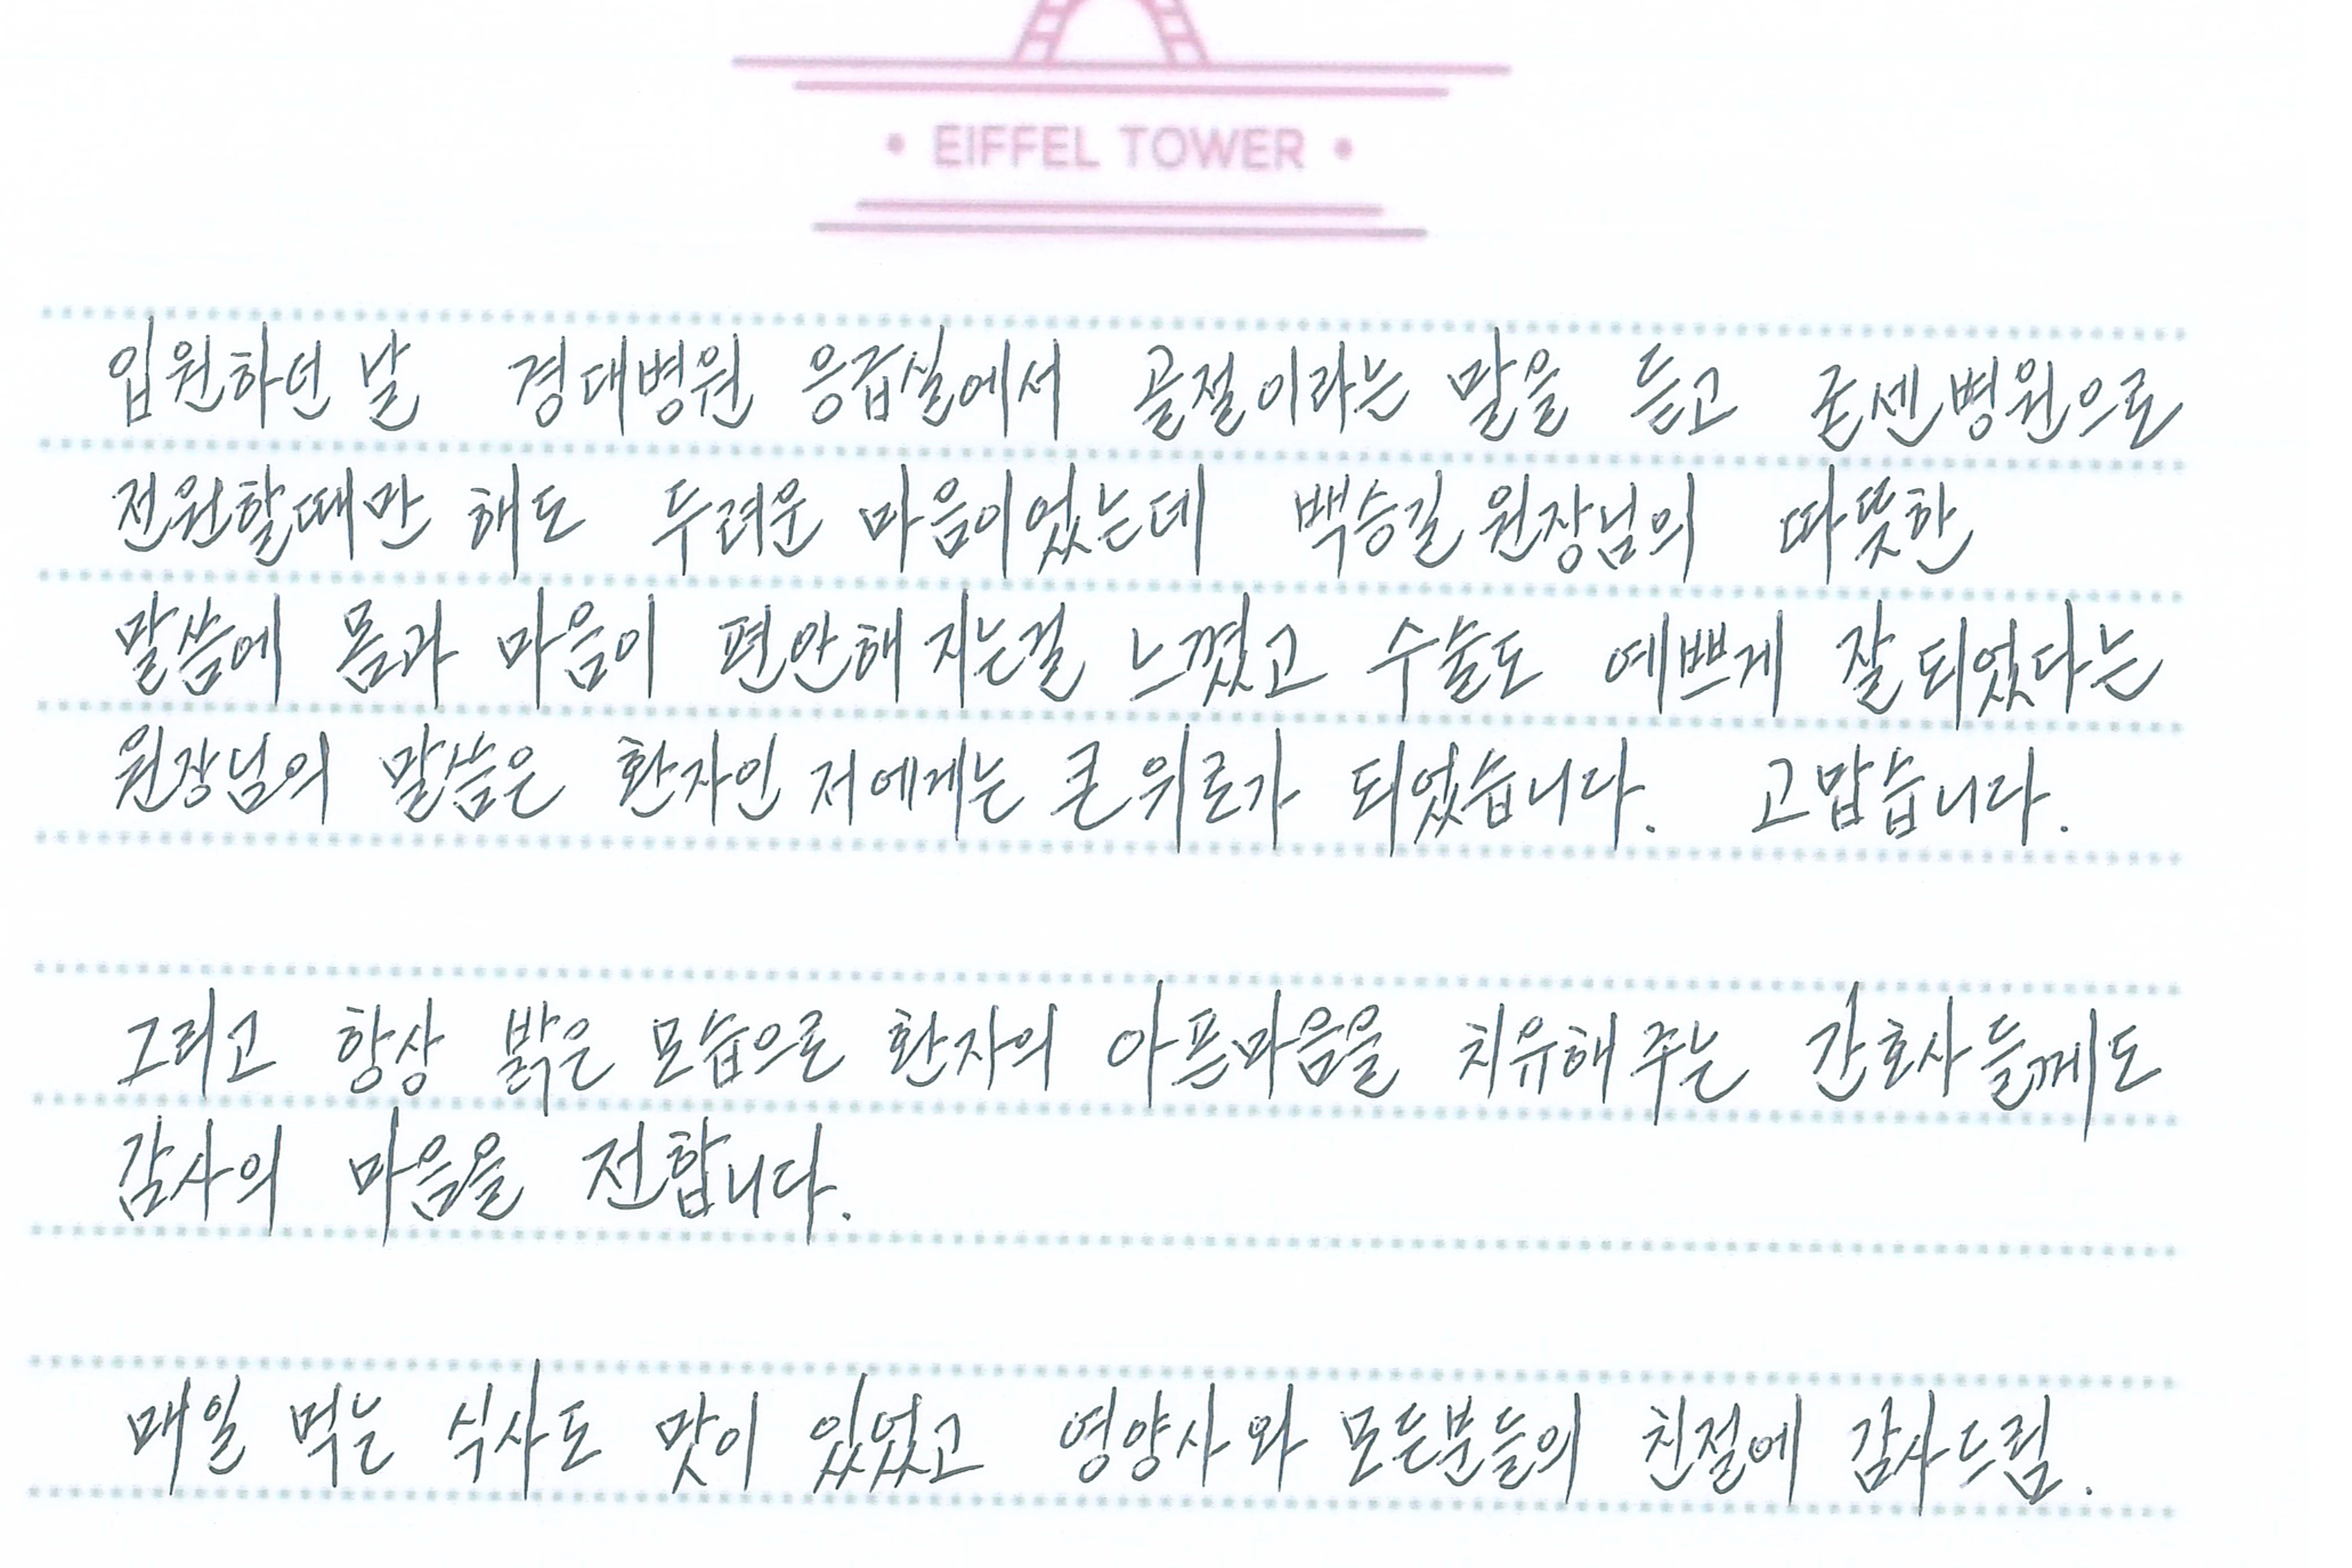 • EIFFEL TOWER •
입원하던 날 경대병원 응급실에서 골절이라는 말을 듣고 굳센병원으로
전원할때만 해도 두려운 마음이었는데 백승길 원장님의 따뜻한
말씀에 몸과 마음이 편안해 지는걸 느꼈고 수술도 예쁘게 잘 되었다는
원장님의 말씀은 환자인 저에게는 큰 위로가 되었습니다. 고맙습니다.
그리고 항상 밝은 모습으로 환자의 아픈마음을 치유해 주는 간호사들께도
감사의 마음을 전합니다.
매일 먹는 식사도 맛이 있었고 영양사와 모든분들의 친절에 감사드림.